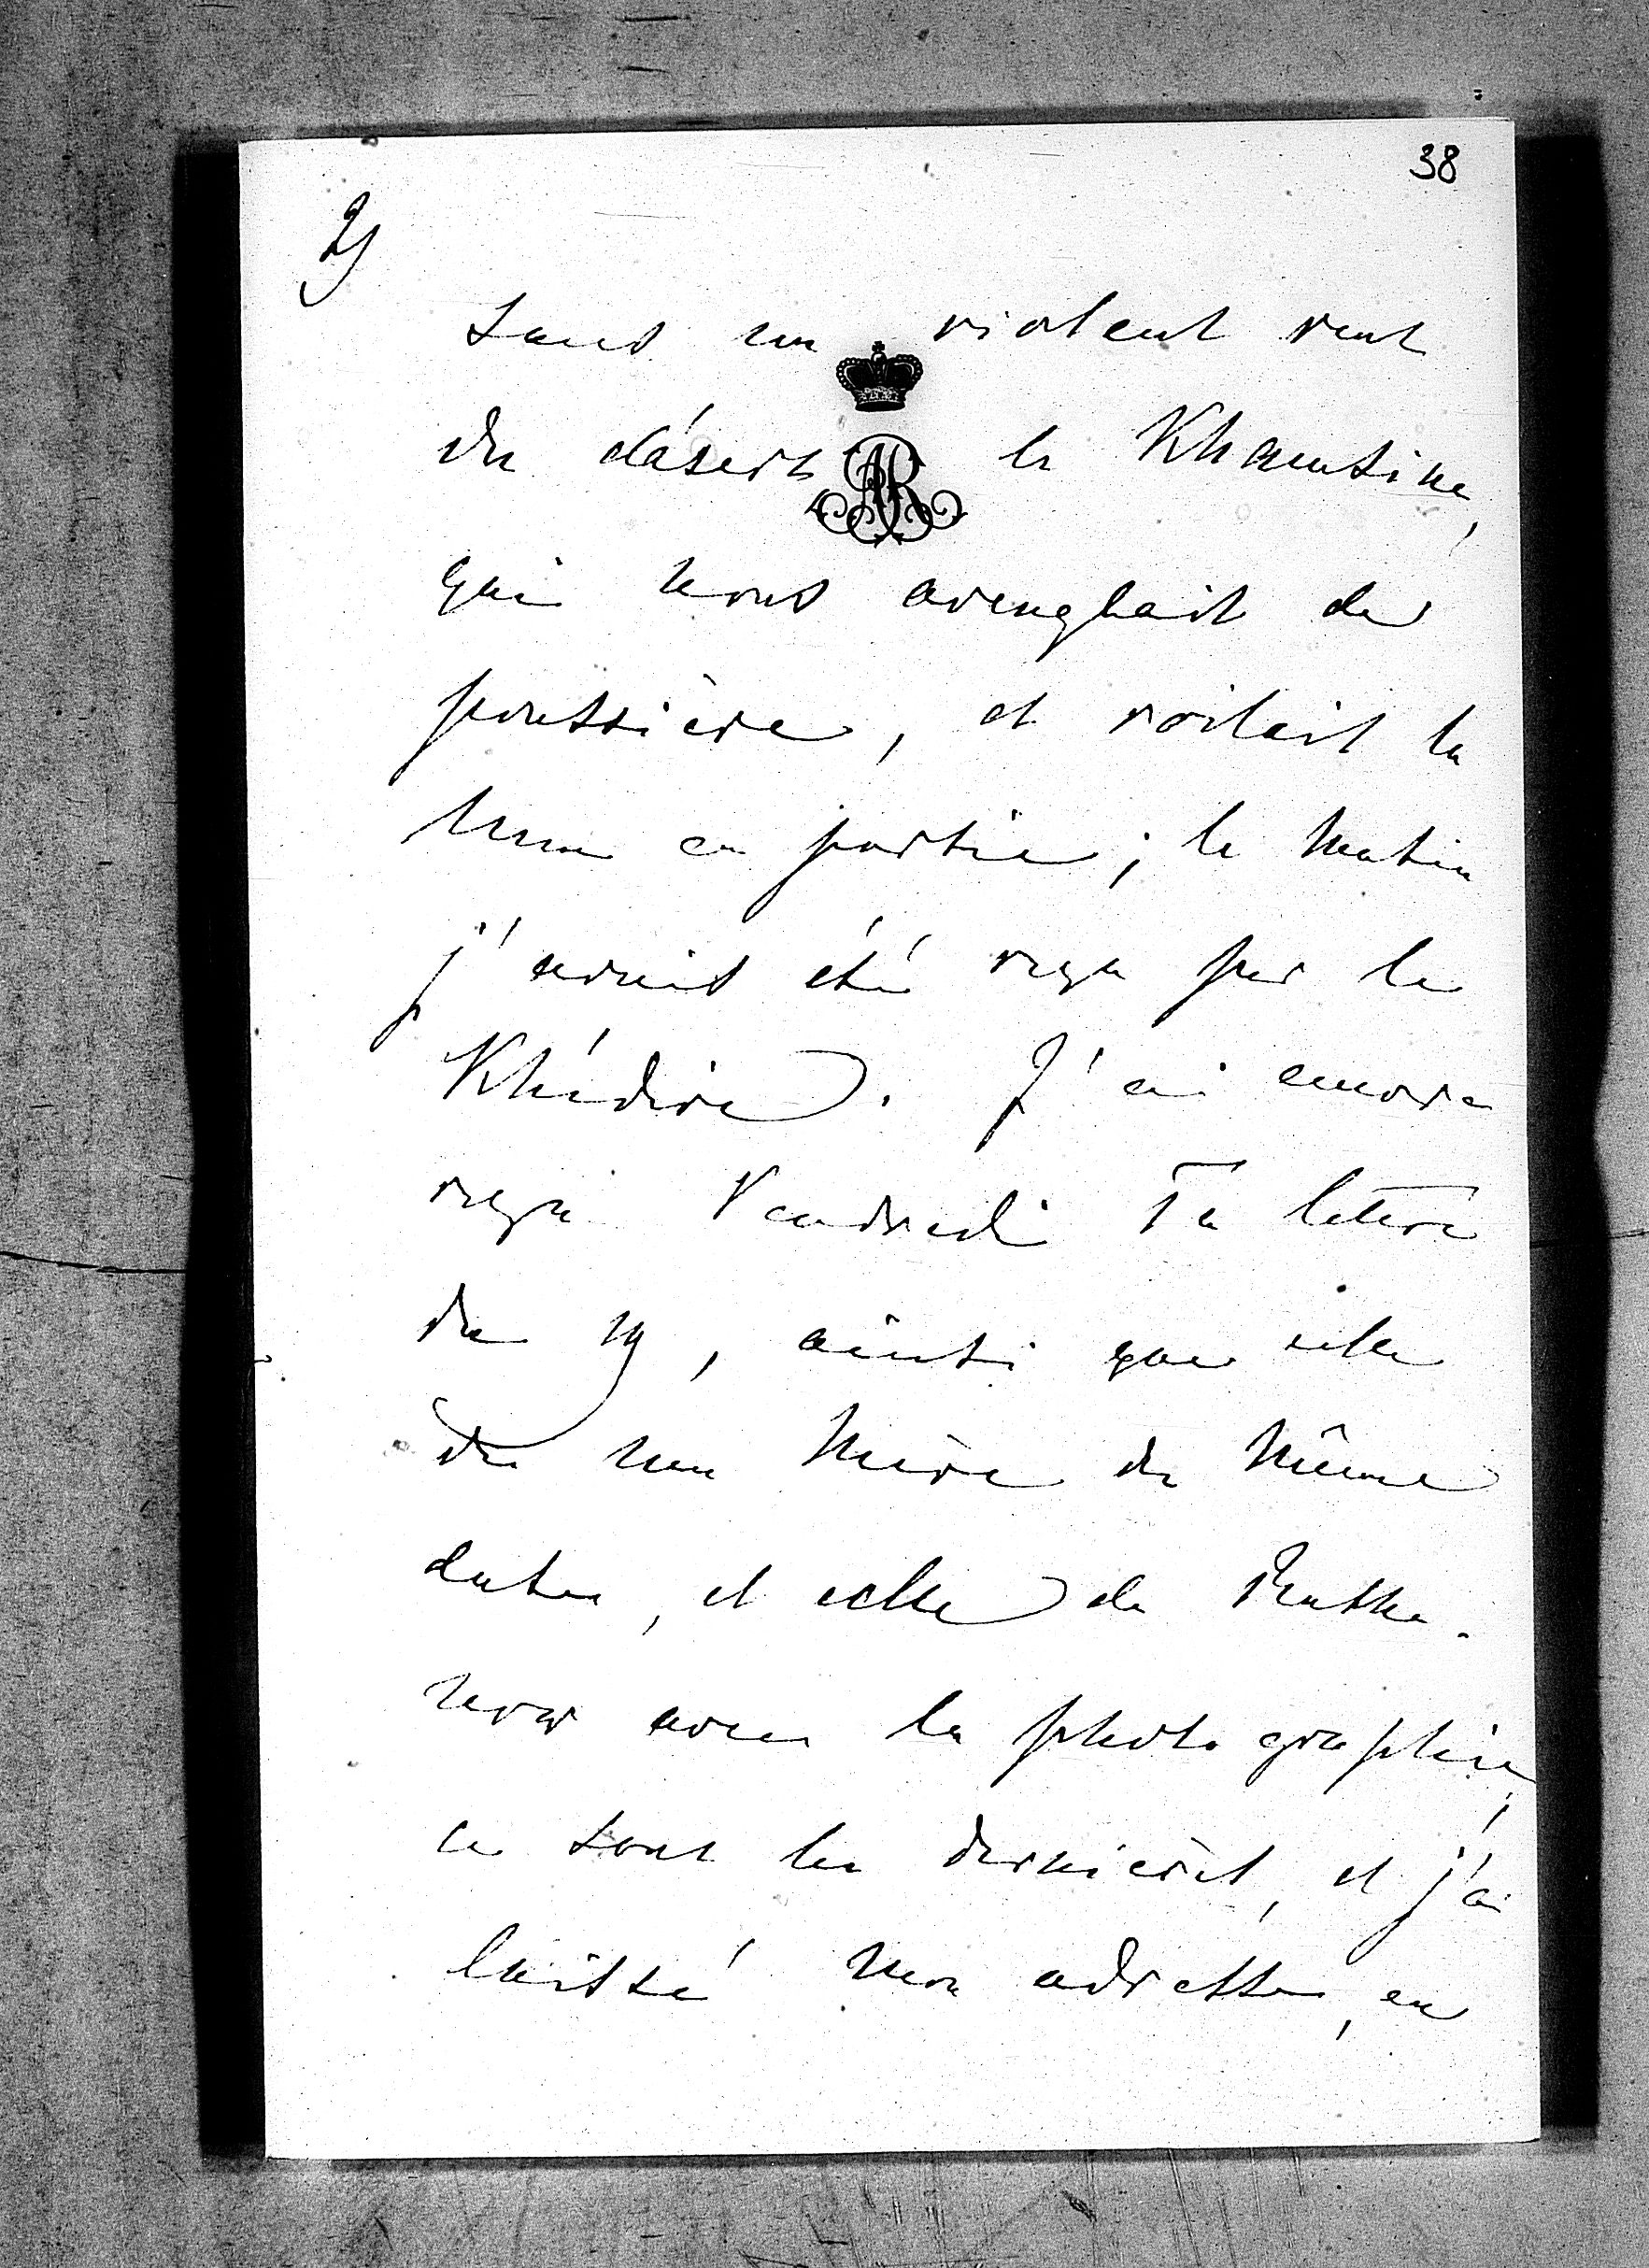 38
2)
sans un violent vent
du désert le Khamsine,
qui nous aveuglait de
poussière, et voilait la
lune en partie; le matin
j'avais été reçu par le
Khédive. J'ai encore
reçu Vendredi Ta lettre
du 19, ainsi que celle
de ma Mère du même
date, et celle de
avec la photographie,
ce sont les dernières, et j'ai
laissé mon adresse, en